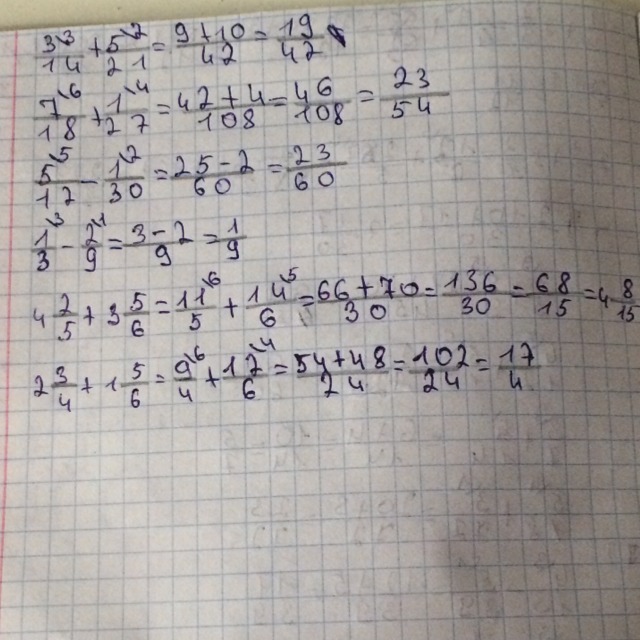 3³/14 + 5²/21 = 9+10/42 = 19/42
7⁶/18 + 1⁴/27 = 42+4/108 = 46/108 = 23/54
5⁵/12 - 1²/30 = 25-2/60 = 23/60
1³/3 - 2¹/9 = 3-2/9 = 1/9
4 2/5 + 3 5/6 = 11⁶/5 + 14⁵/6 = 66+70/30 = 136/30 = 68/15 = 4 8/15
2 3/4 + 1 5/6 = 9⁶/4 + 12⁴/6 = 54+48/24 = 102/24 = 17/4